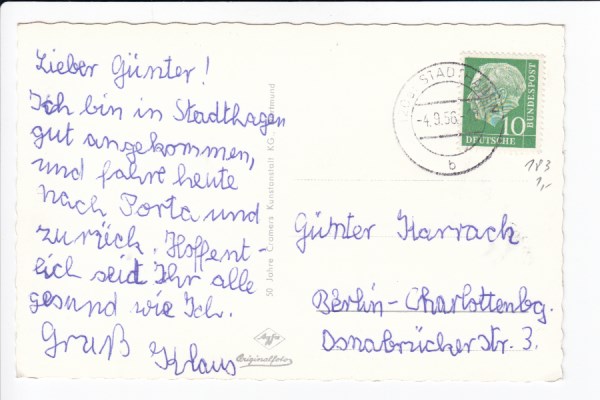 Lieber Günter!
Ich bin in Stadthagen
gut angekommen,
und fahre heute
nach Porta und
zurück. Hoffent-
lich seid Ihr alle
gesund wie Ich.
Gruß Klaus
50 Jahre Cramers Kunstanstalt KG
Agfa
Originalfoto
-4.9.56
b
10
DEUTSCHE
BUNDESPOST
183
1,-
Günter Harrack
Berlin-Charlottenbg.
Osnabrücker Str. 3.